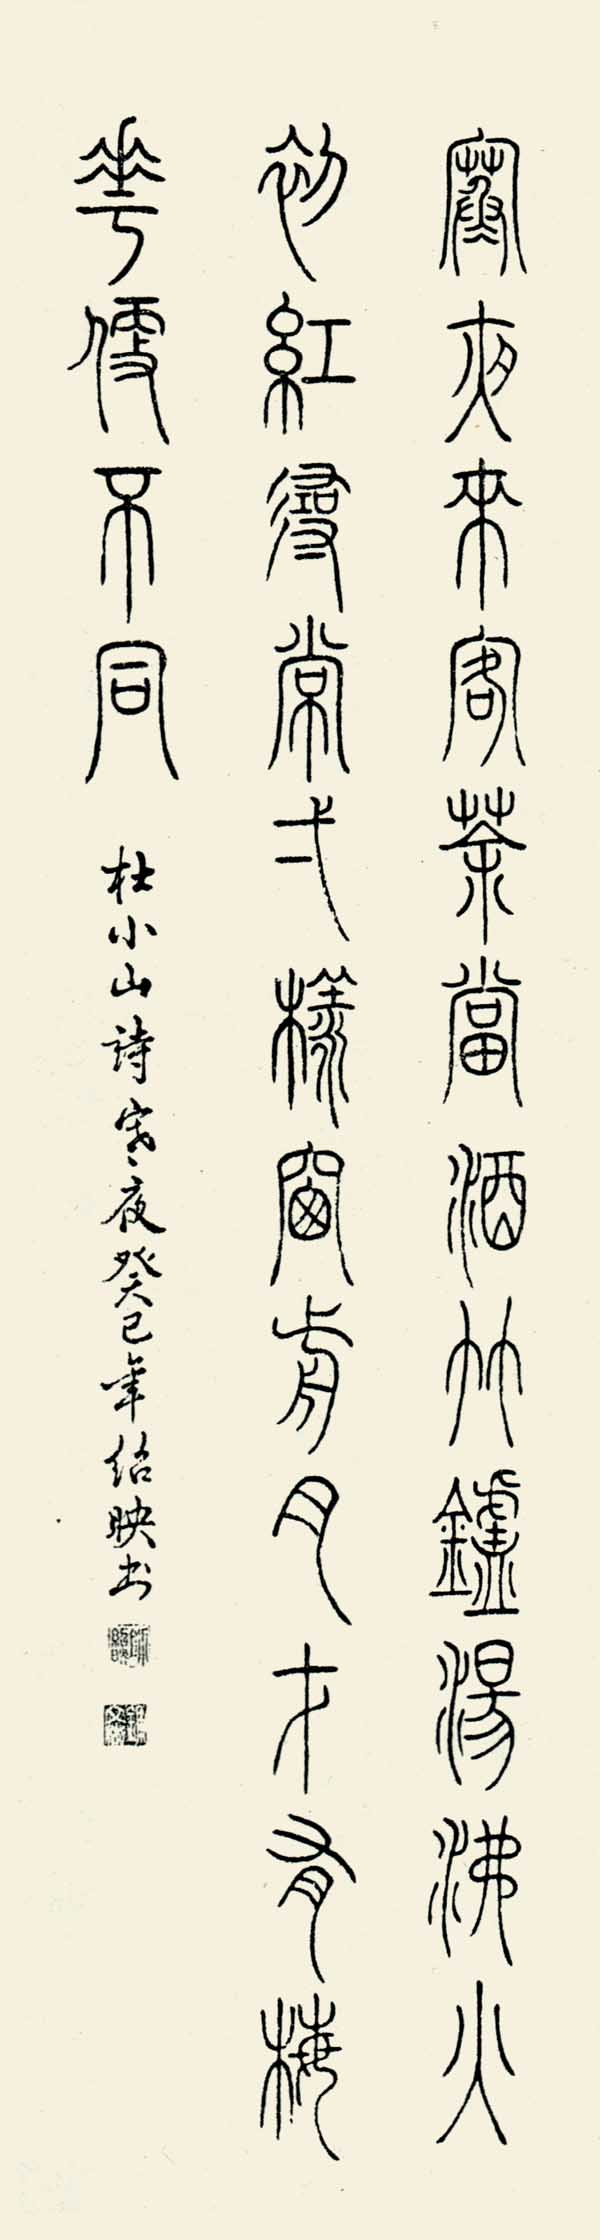 寒夜來客茶當酒竹鑪湯沸火
初紅尋常弌樣窗前月才有梅
華便不同
杜小山詩寒夜癸巳年紹映书